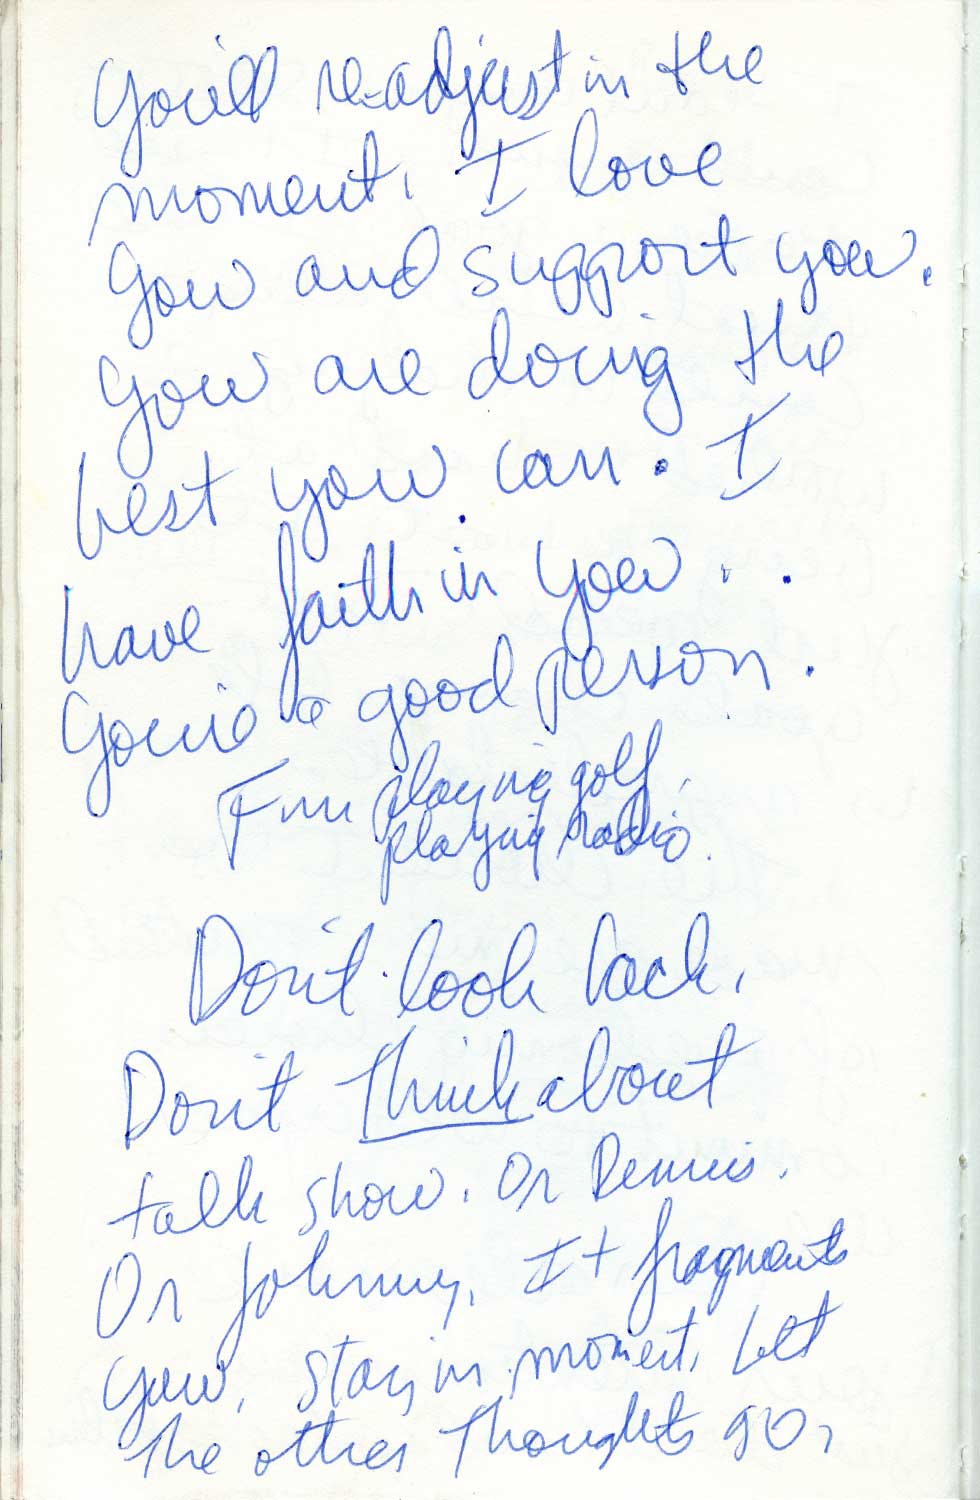 You'll re-adjust in the
moment. I love
you and support you.
You are doing the
best you can. I
have faith in you..
You're a good person.
Fun playing golf,
playing radio.
Don't look back.
Don't think about
talk show. Or Dennis.
Or Johnny. It fragments
you. Stay in moment. Let
the other thoughts go.